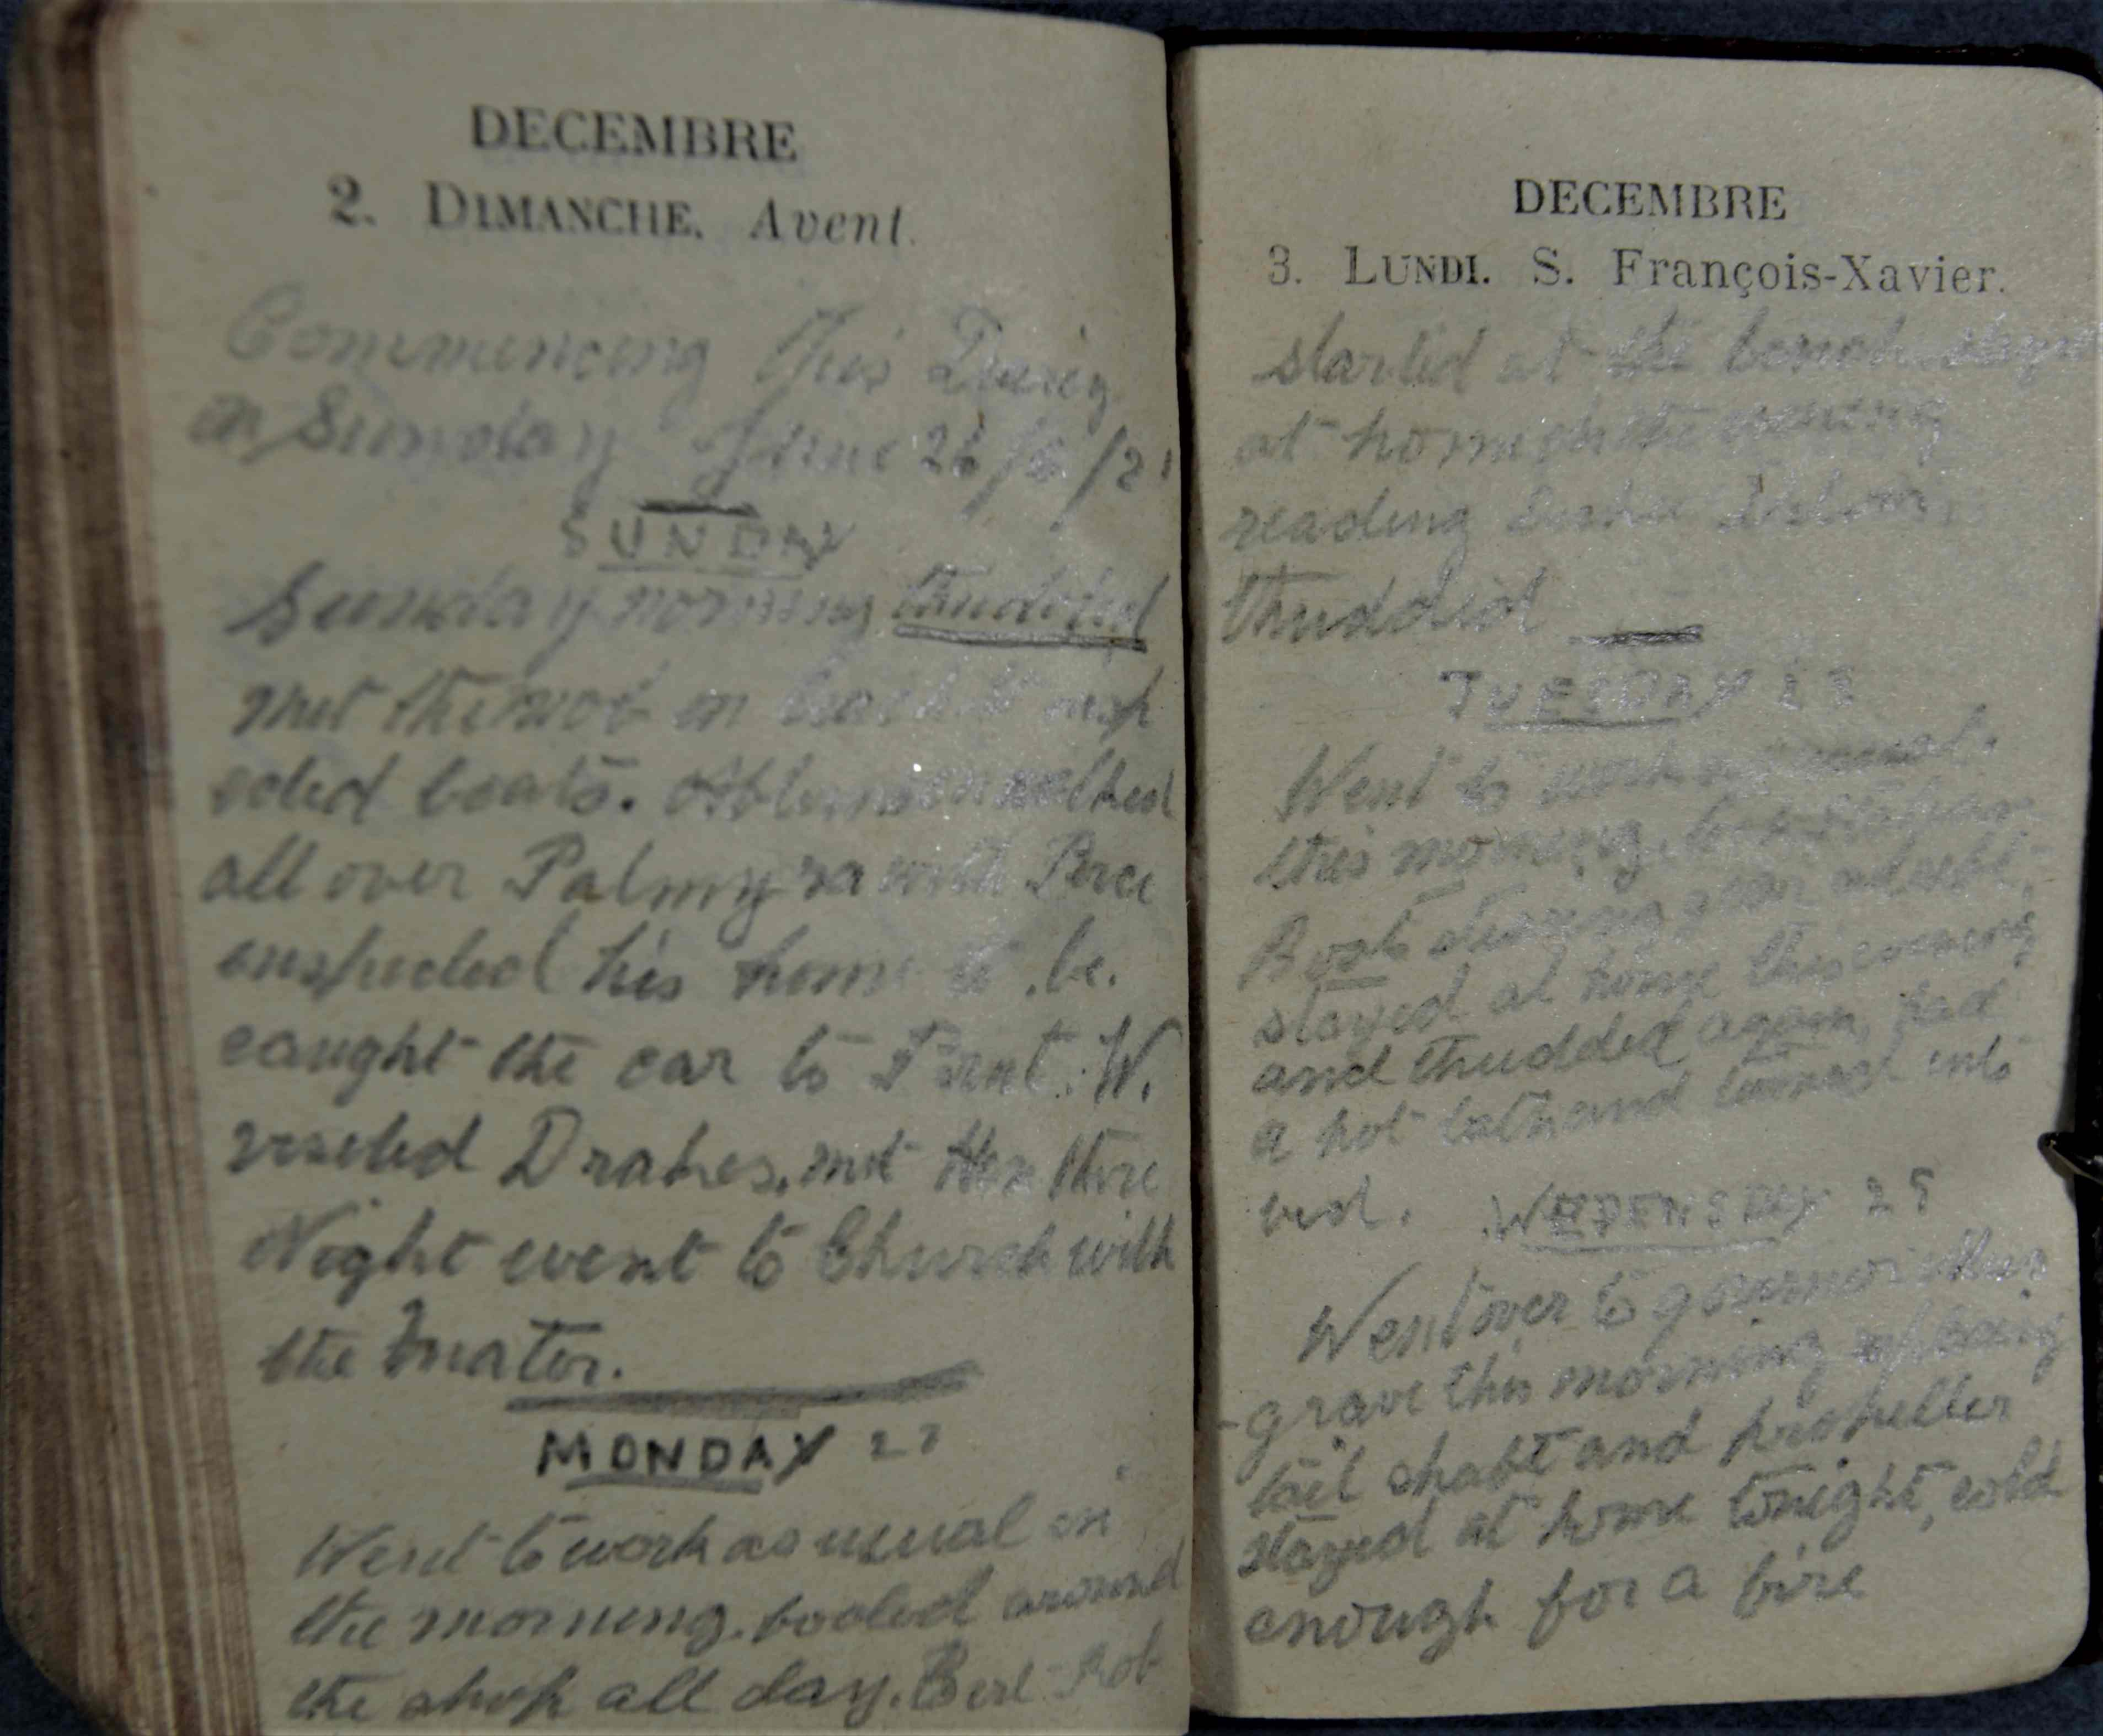 DECEMBRE
2. DIMANCHE. Avent.
Commencing This Diary
on Sunday June 26/6/21
SUNDAY
Sunday morning thudded
met the mob on beach & insp
ected boats. Afternoon walked
all over Palmyra with Perce
inspected his home to be.
caught the car to Point. W.
visited Drakes, met there
Night went to Church with
the Mater.
MONDAY 27
Went to work as usual in
the morning. fooled around
the shop all day. Bert Rob
DECEMBRE
3. LUNDI. S. François-Xavier.
started at the
at home evening
reading
thudded
TUESDAY 28
Went to work as usual.
this morning.
Boat steering gear
stayed at home this evening
and thudded again, had
a hot bath and turned into
bed. WEDENSDAY 29
Went over to governor
grave this morning replacing
tail shaft and propeller
stayed at home tonight, cold
enough for a fire